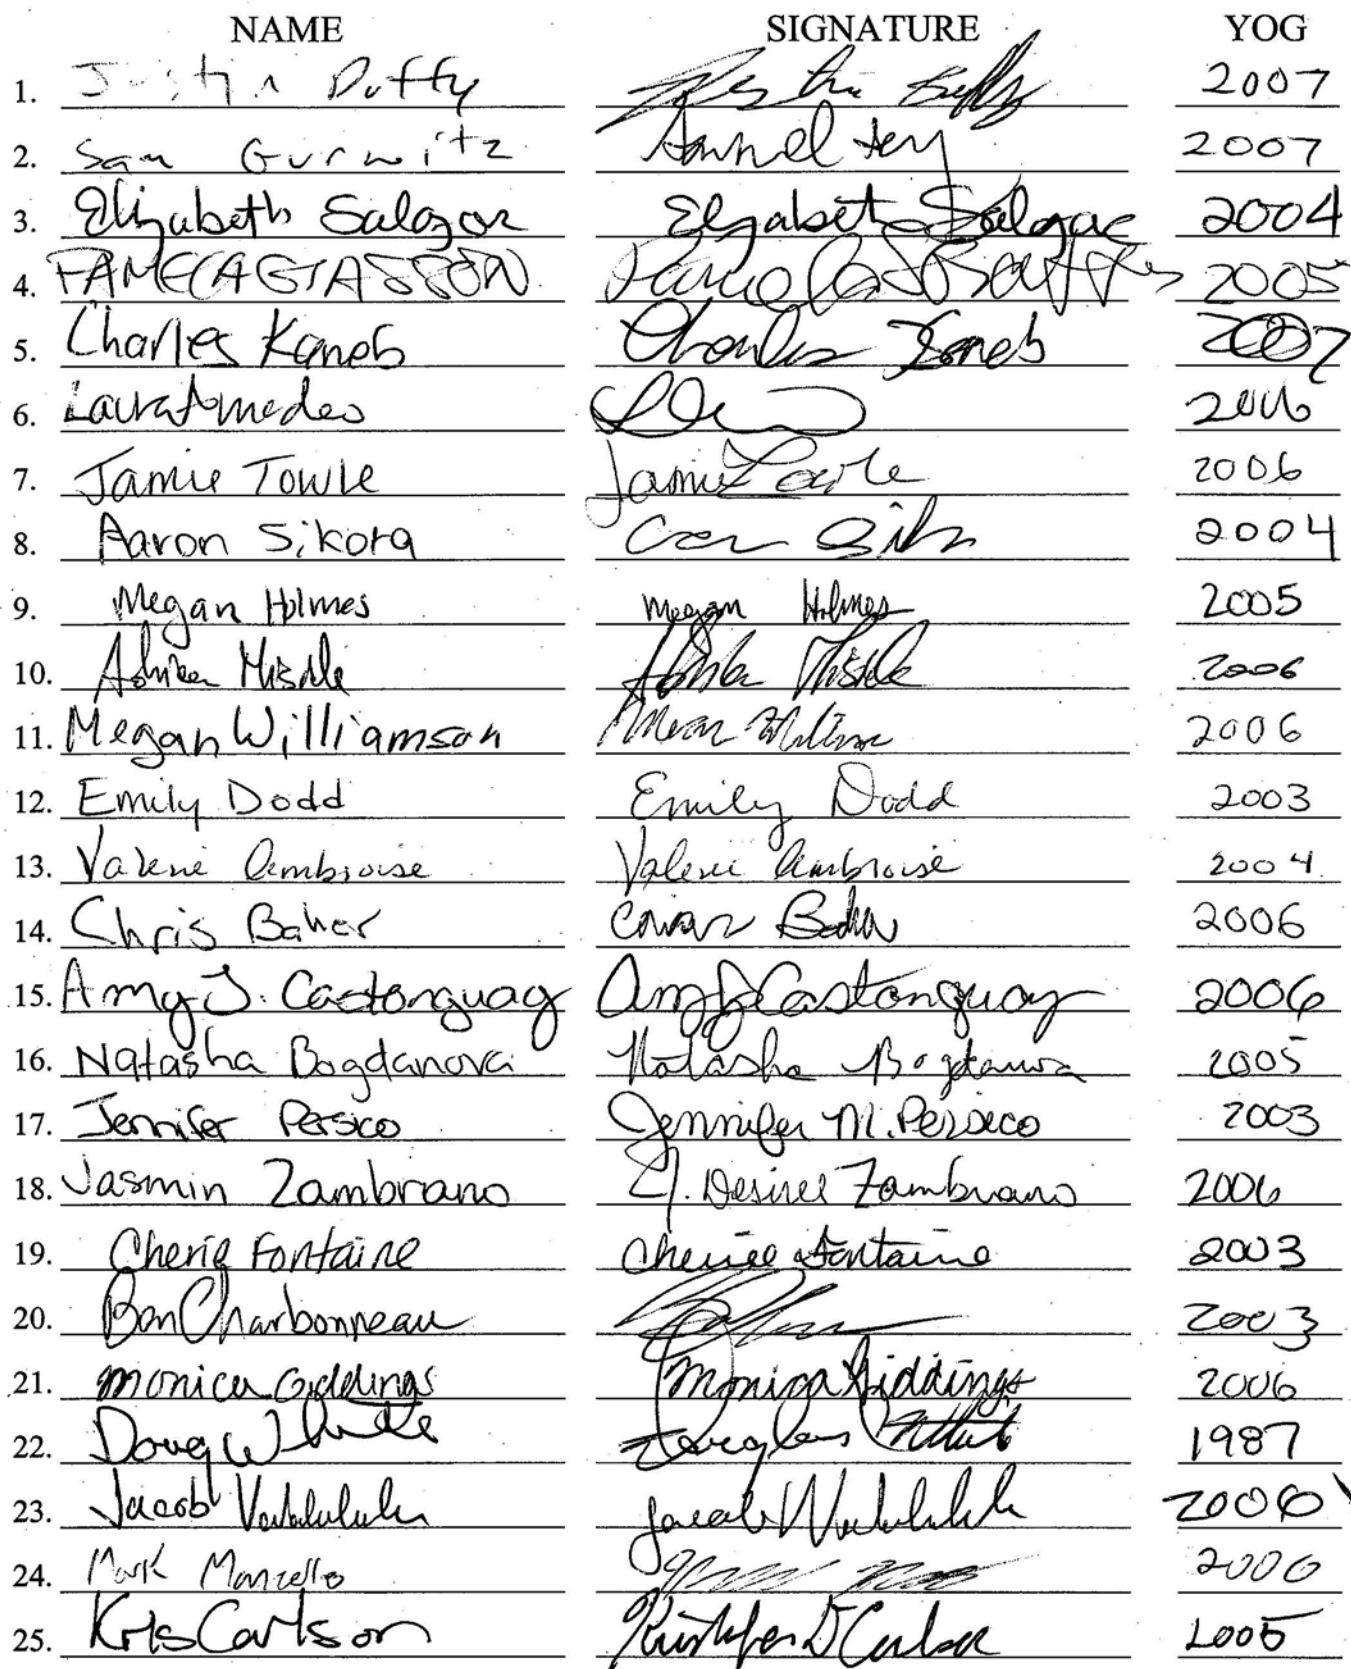 NAME SIGNATURE YOG
1. Justin Duffy Justin Duffy 2007
2. Sam Gurwitz 2007
3. Elizabeth Salazar Elizabeth Salazar 2004
4. 2005
5. Charles Kaneb Charles Kaneb 2007
6. Laura Amedeo 2006
7. Jamie Towle Jamie Towle 2006
8. Aaron Sikora 2004
9. Megan Holmes Megan Holmes 2005
10. 2006
11. Megan Williamson 2006
12. Emily Dodd Emily Dodd 2003
13. Valerie Ambroise Valerie Ambroise 2004
14. Chris Baker 2006
15. Amy J. Castonguay Amy J Castonguay 2006
16. Natasha Bogdanova Natasha Bogdanova 2005
17. Jennifer Persico Jennifer M. Persico 2003
18. Jasmin Zambrano J. Desiree Zambrano 2006
19. Cherie Fontaine Cheriee Fontaine 2003
20. Ben Charbonneau 2003
21. Monica Giddings Monica Giddings 2006
22. Doug White Douglas 1987
23. Jacob Jacob 2006
24. Mark Marcello 2006
25. Kris Carlson 2005